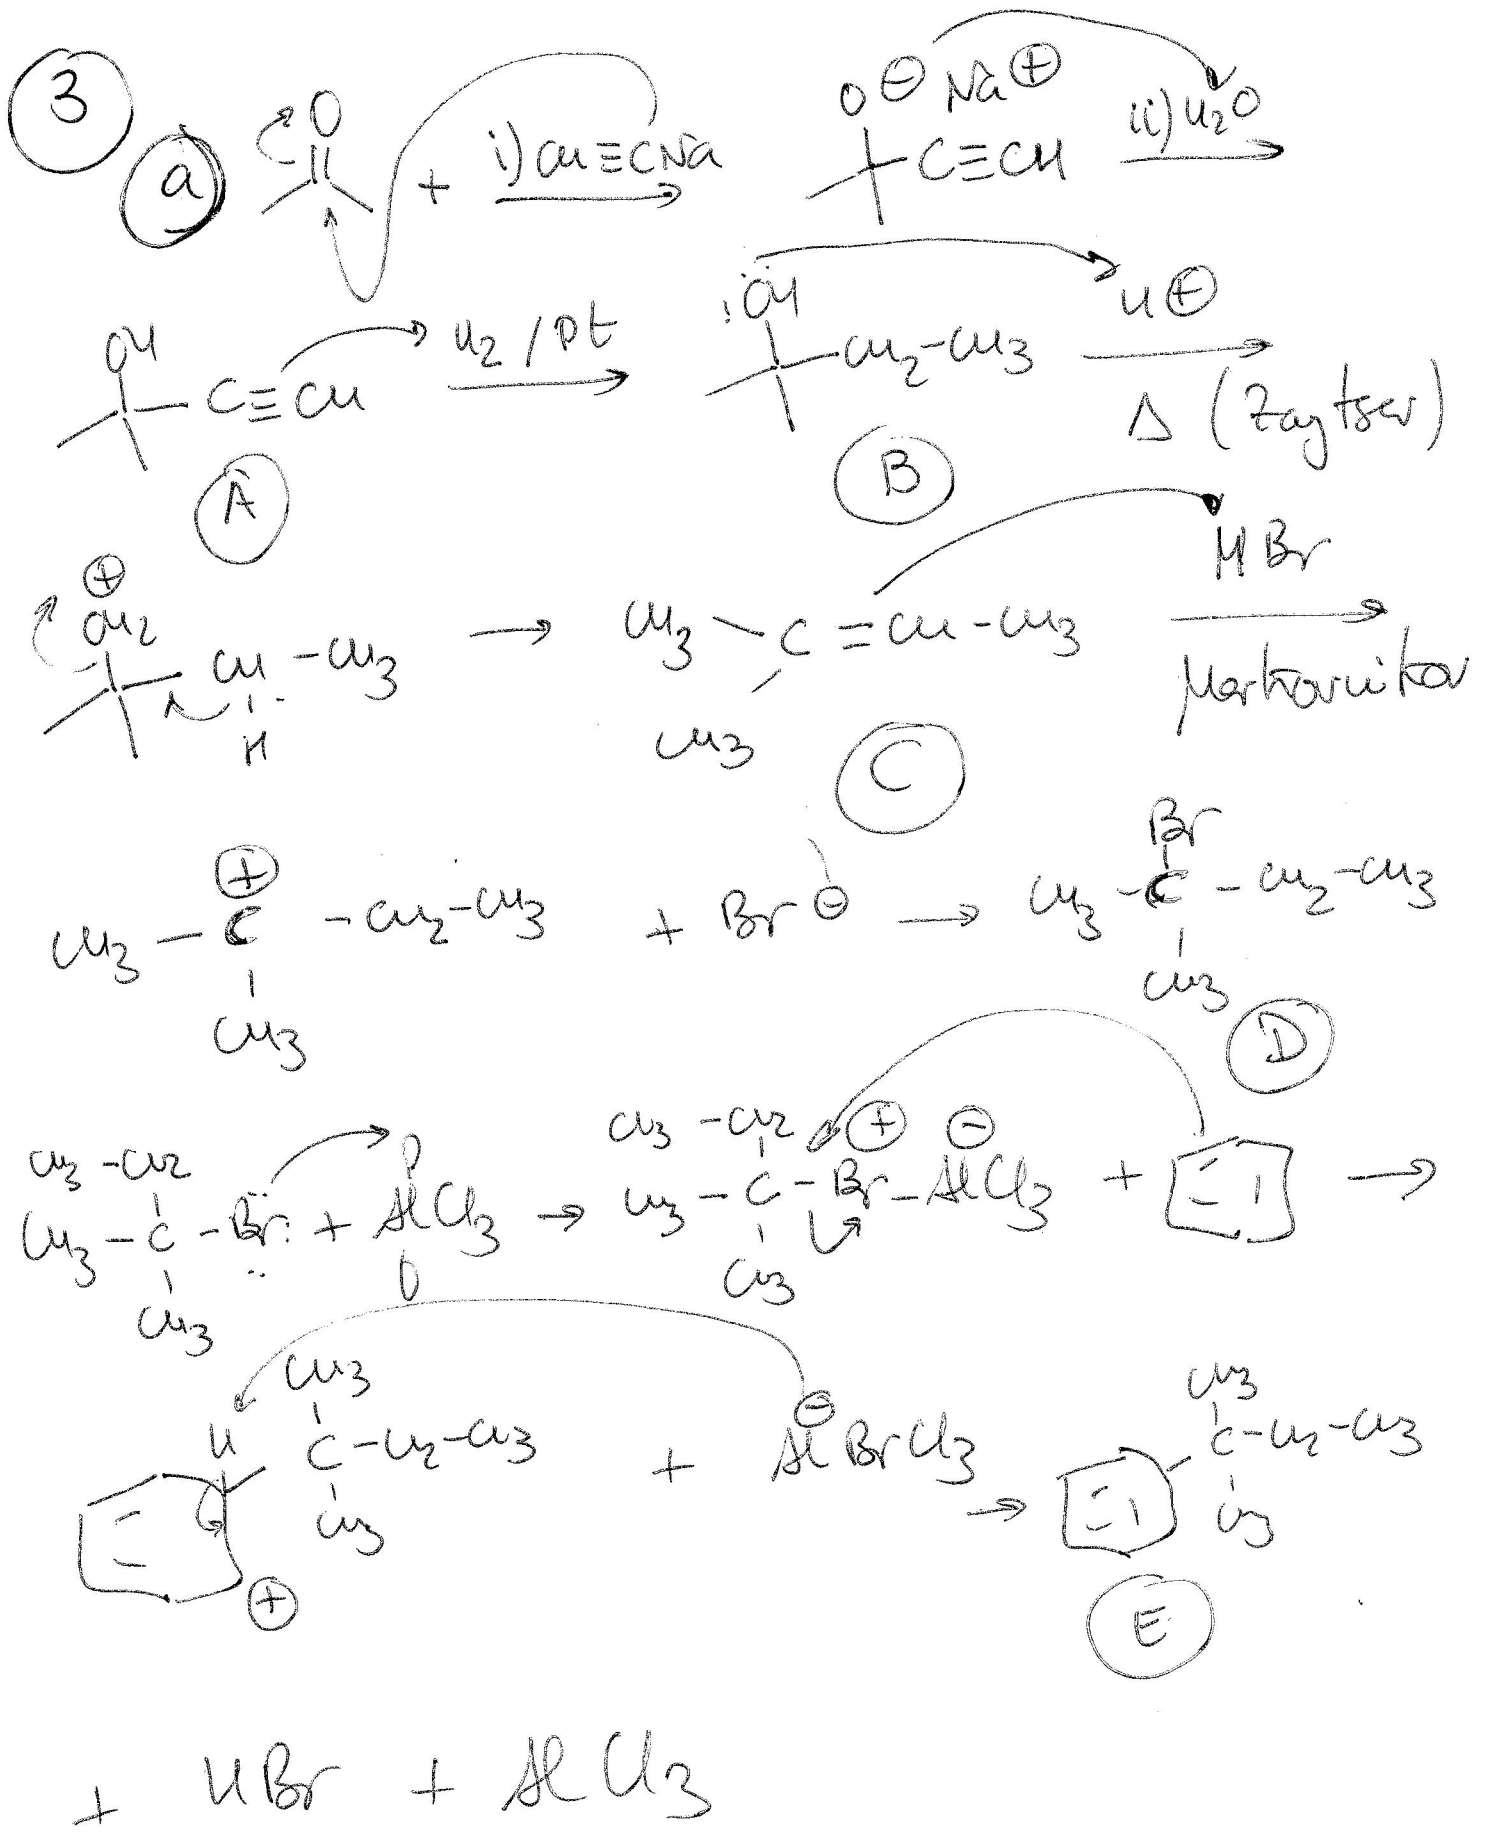 3
a O + i) CH≡CNa O ⊖ Na ⊕ C≡CH ii) H2O
OH C≡CH H2 / Pt :OH CH2-CH3 H ⊕
A B Δ (Zaytsev)
⊕ OH2 CH -CH3 H → CH3 C = CH - CH3 CH3 HBr
C Markovnikov
CH3 - C ⊕ - CH2-CH3 CH3 + Br ⊖ → CH3 - C - CH2-CH3 Br CH3
D
CH3 - CH2 CH3 - C - Br: CH3 + AlCl3 → CH3 - CH2 CH3 - C - Br - AlCl3 CH3 ⊕ ⊖ + →
H CH3 C - CH2 - CH3 CH3 ⊕ + ⊖ AlBrCl3 → CH3 C - CH2 - CH3 CH3
E
+ HBr + AlCl3